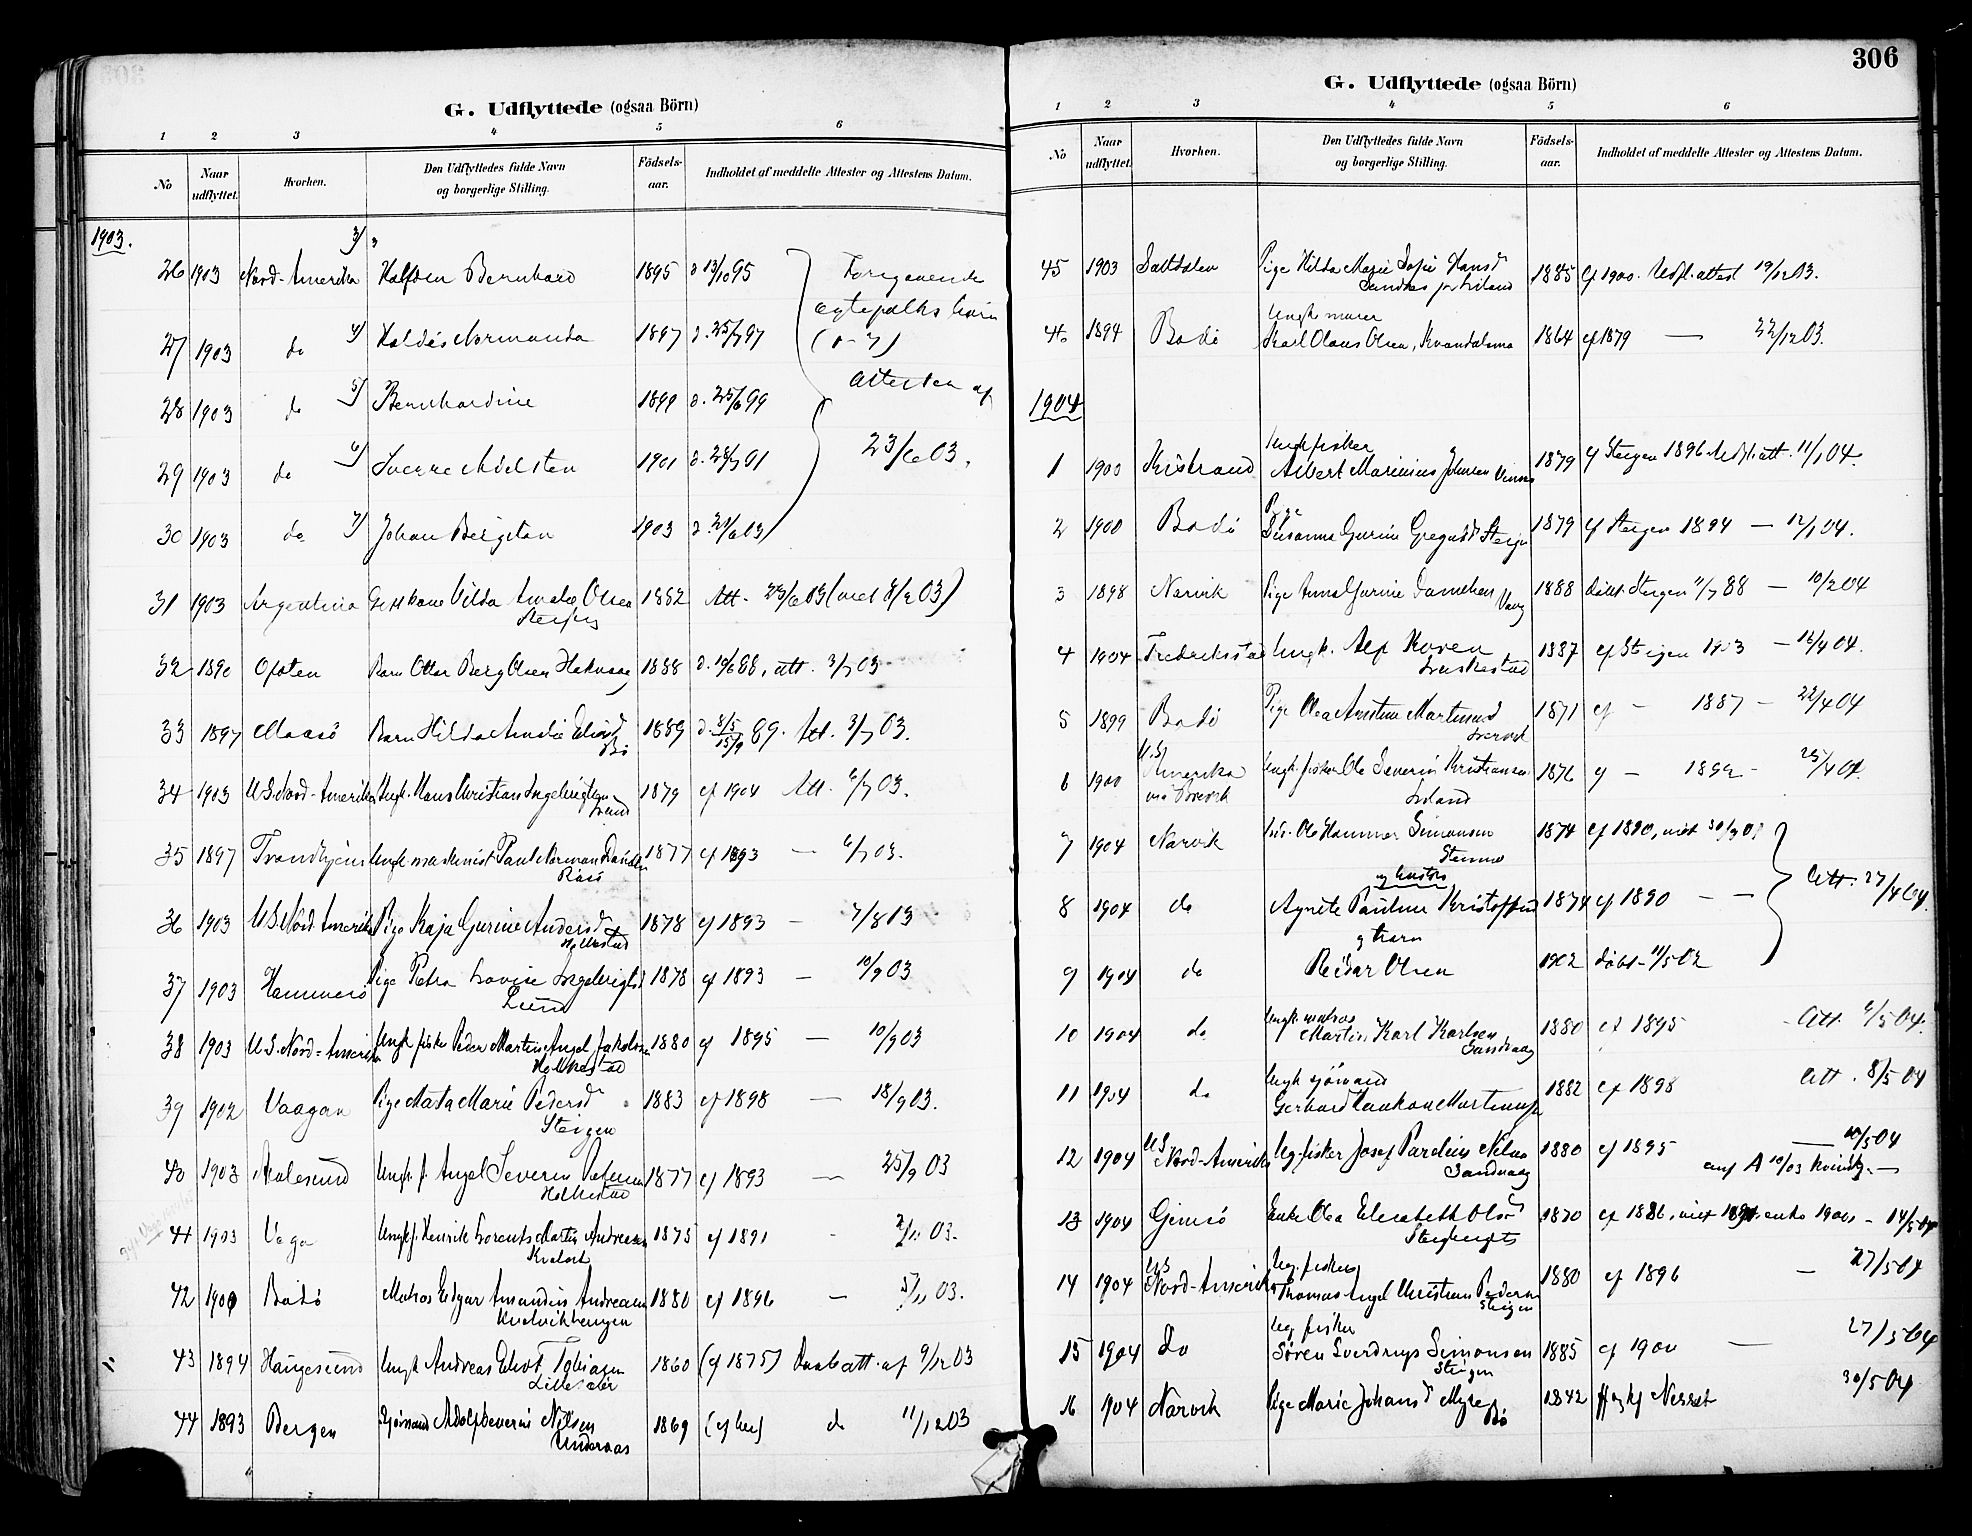 G. Udflyttede (ogsaa Börn)
1 2 3 4 5 6
No Naar udflyttet. Hvorhen. Den Udflyttedes fulde Navn og borgerlige Stilling. Födsels-aar. Indholdet af meddelte Attester og Attestens Datum.
1903.
26 1903 Nord-Amerika 3) Halfdan Bernhard 1895 d 13/10 95 Foregaaende
egtefolks børn
27 1903 do 4) Haldis Normanda 1897 d. 25/7 97
28 1903 do 5) Bernhardine 1899 d. 25/6 99 Attesten af
29 1903 do 6) Sverre Nidstan 1901 d. 28/7 01 23/6 03.
30 1903 do 7) Johan Bergitan 1903 d. 21/6 03
31 1903 Argentina Gift kone Vilda Amalie Olsen 1882 Att. 23/6 03 (viet 8/2 03)
Steigen
32 1890 Ofoten Barn Otter Berg Olsen 1888 d. 10/6 88, att. 3/7 03
33 1897 Maasö Barn Hilda Amalie 1889 d. 15/9 89. Att. 3/7 03.
Bö
34 1903 U.S. Nord-Amerika Ungk. Hans Kristian Ingebrigtsen 1879 cf 1904 Att. 6/7 03.
Lund
35 1897 Trondhjem Ungk maskinist Paul Norman 1877 cf 1893 — 6/7 03.
36 1903 U.S. Nord-Amerika Pige Kaja Gurine Andersd 1878 cf 1893 — 7/8 03
Holkestad
37 1903 Hammerö Pige Petra Lovise Ingebrigtsd 1878 cf 1893 — 10/9 03
Lund
38 1903 U.S. Nord-Amerika Ungk fisker Peder Martin Angel Jakobsen 1880 cf 1895 — 10/9 03
Holkestad
39 1902 Vaagan Pige Marta Marie Pedersd 1883 cf 1898 — 18/9 03.
Steigen
40 1903 Aalesund Ungk. f. Angel Severin Petersen 1877 cf 1893 — 25/9 03
Holkestad
41 1903 Vega Ungkf. Henrik Lorents Martin Andreasen 1875 cf 1891 - 2/11 03.
42 1900 Bodö Matros Edgar Amandus Andreasen 1880 cf 1896 — 5/11 03.
43 1894 Haugesund Ungk Andreas Tobiasen 1860 (cf 1875) Daabatt. af 9/12 03
44 1893 Bergen Sjömand Adolf Severin Nilsen 1869 (cf her) do 11/12 03
306
G. Udflyttede (ogsaa Börn)
1 2 3 4 5 6
No Naar udflyttet. Hvorhen. Den Udflyttedes fulde Navn og borgerlige Stilling. Födsels-aar. Indholdet af meddelte Attester og Attestens Datum.
45 1903 Saltdalen Pige Hilda Marie Sofie Hansd 1885 cf 1900. Udfl. attest 19/12 03.
46 1894 Bodö Ungk murer
Karl Olaus Olsen, 1864 cf 1879 — 22/12 03.
1904
1 1900 Kistrand Ungk fisker
Albert Marinius Johnsen 1879 cf Steigen 1896 Udfl. att. 11/1 04.
2 1900 Bodö Pige
Susanna Gurine Steigen 1879 cf Steigen 1894 — 12/1 04.
3 1898 Narvik Pige Anna Gurine Danielsen 1888 döbt Steigen 11/7 88 — 10/2 04
4 1904 Fredriksstad Ungk. Alf Koren 1887 cf Steigen 1903 — 12/4 04.
5 1899 Bodö Pige Olea Anstine Martinusd 1871 cf - 1887 - 22/4 04
6 1900 U.S. Amerika Ungk. fisker Ole Severin Kristiansen 1876 cf - 1892 - 25/4 04.
7 1904 Narvik Ole Hammer Simonsen 1874 cf 1890, viet
og hustru
8 1904 do Agnete Pauline Kristoffersd 1874 cf 1890 — Att. 27/4 04.
og barn
9 1904 do Reidar Olsen 1902 döbt 11/5 02
10 1904 do Ungk matros
Martin Karl Karlsen 1880 cf 1895 - Att. 6/5 04.
Sandvaag
11 1904 do Ungk sjömand
Gerhard Haakon Martinussen 1882 cf 1898 Att. 8/5 04
12 1904 US Nord-Amerika Ug. fisker Josef Parelius Nilsen 1880 cf 1895 — 10/5 04
Sandvaag
13 1904 Gimsö Enke Olea Elisabeth Olsd 1870 cf 1886, viet enke 1900 - 14/5 04
14 1904 US Nord-Amerika Ug. fisker
Thomas Angel Kristian Pedersen 1880 cf 1896 — 27/5 04
Steigen
15 1904 do Ug fisker
Søren Sverdrup Simonsen 1885 cf 1900 — 27/5 04
Steigen
16 1904 Narvik Pige Marie Johansd Myre 1842 30/5 04
Bö